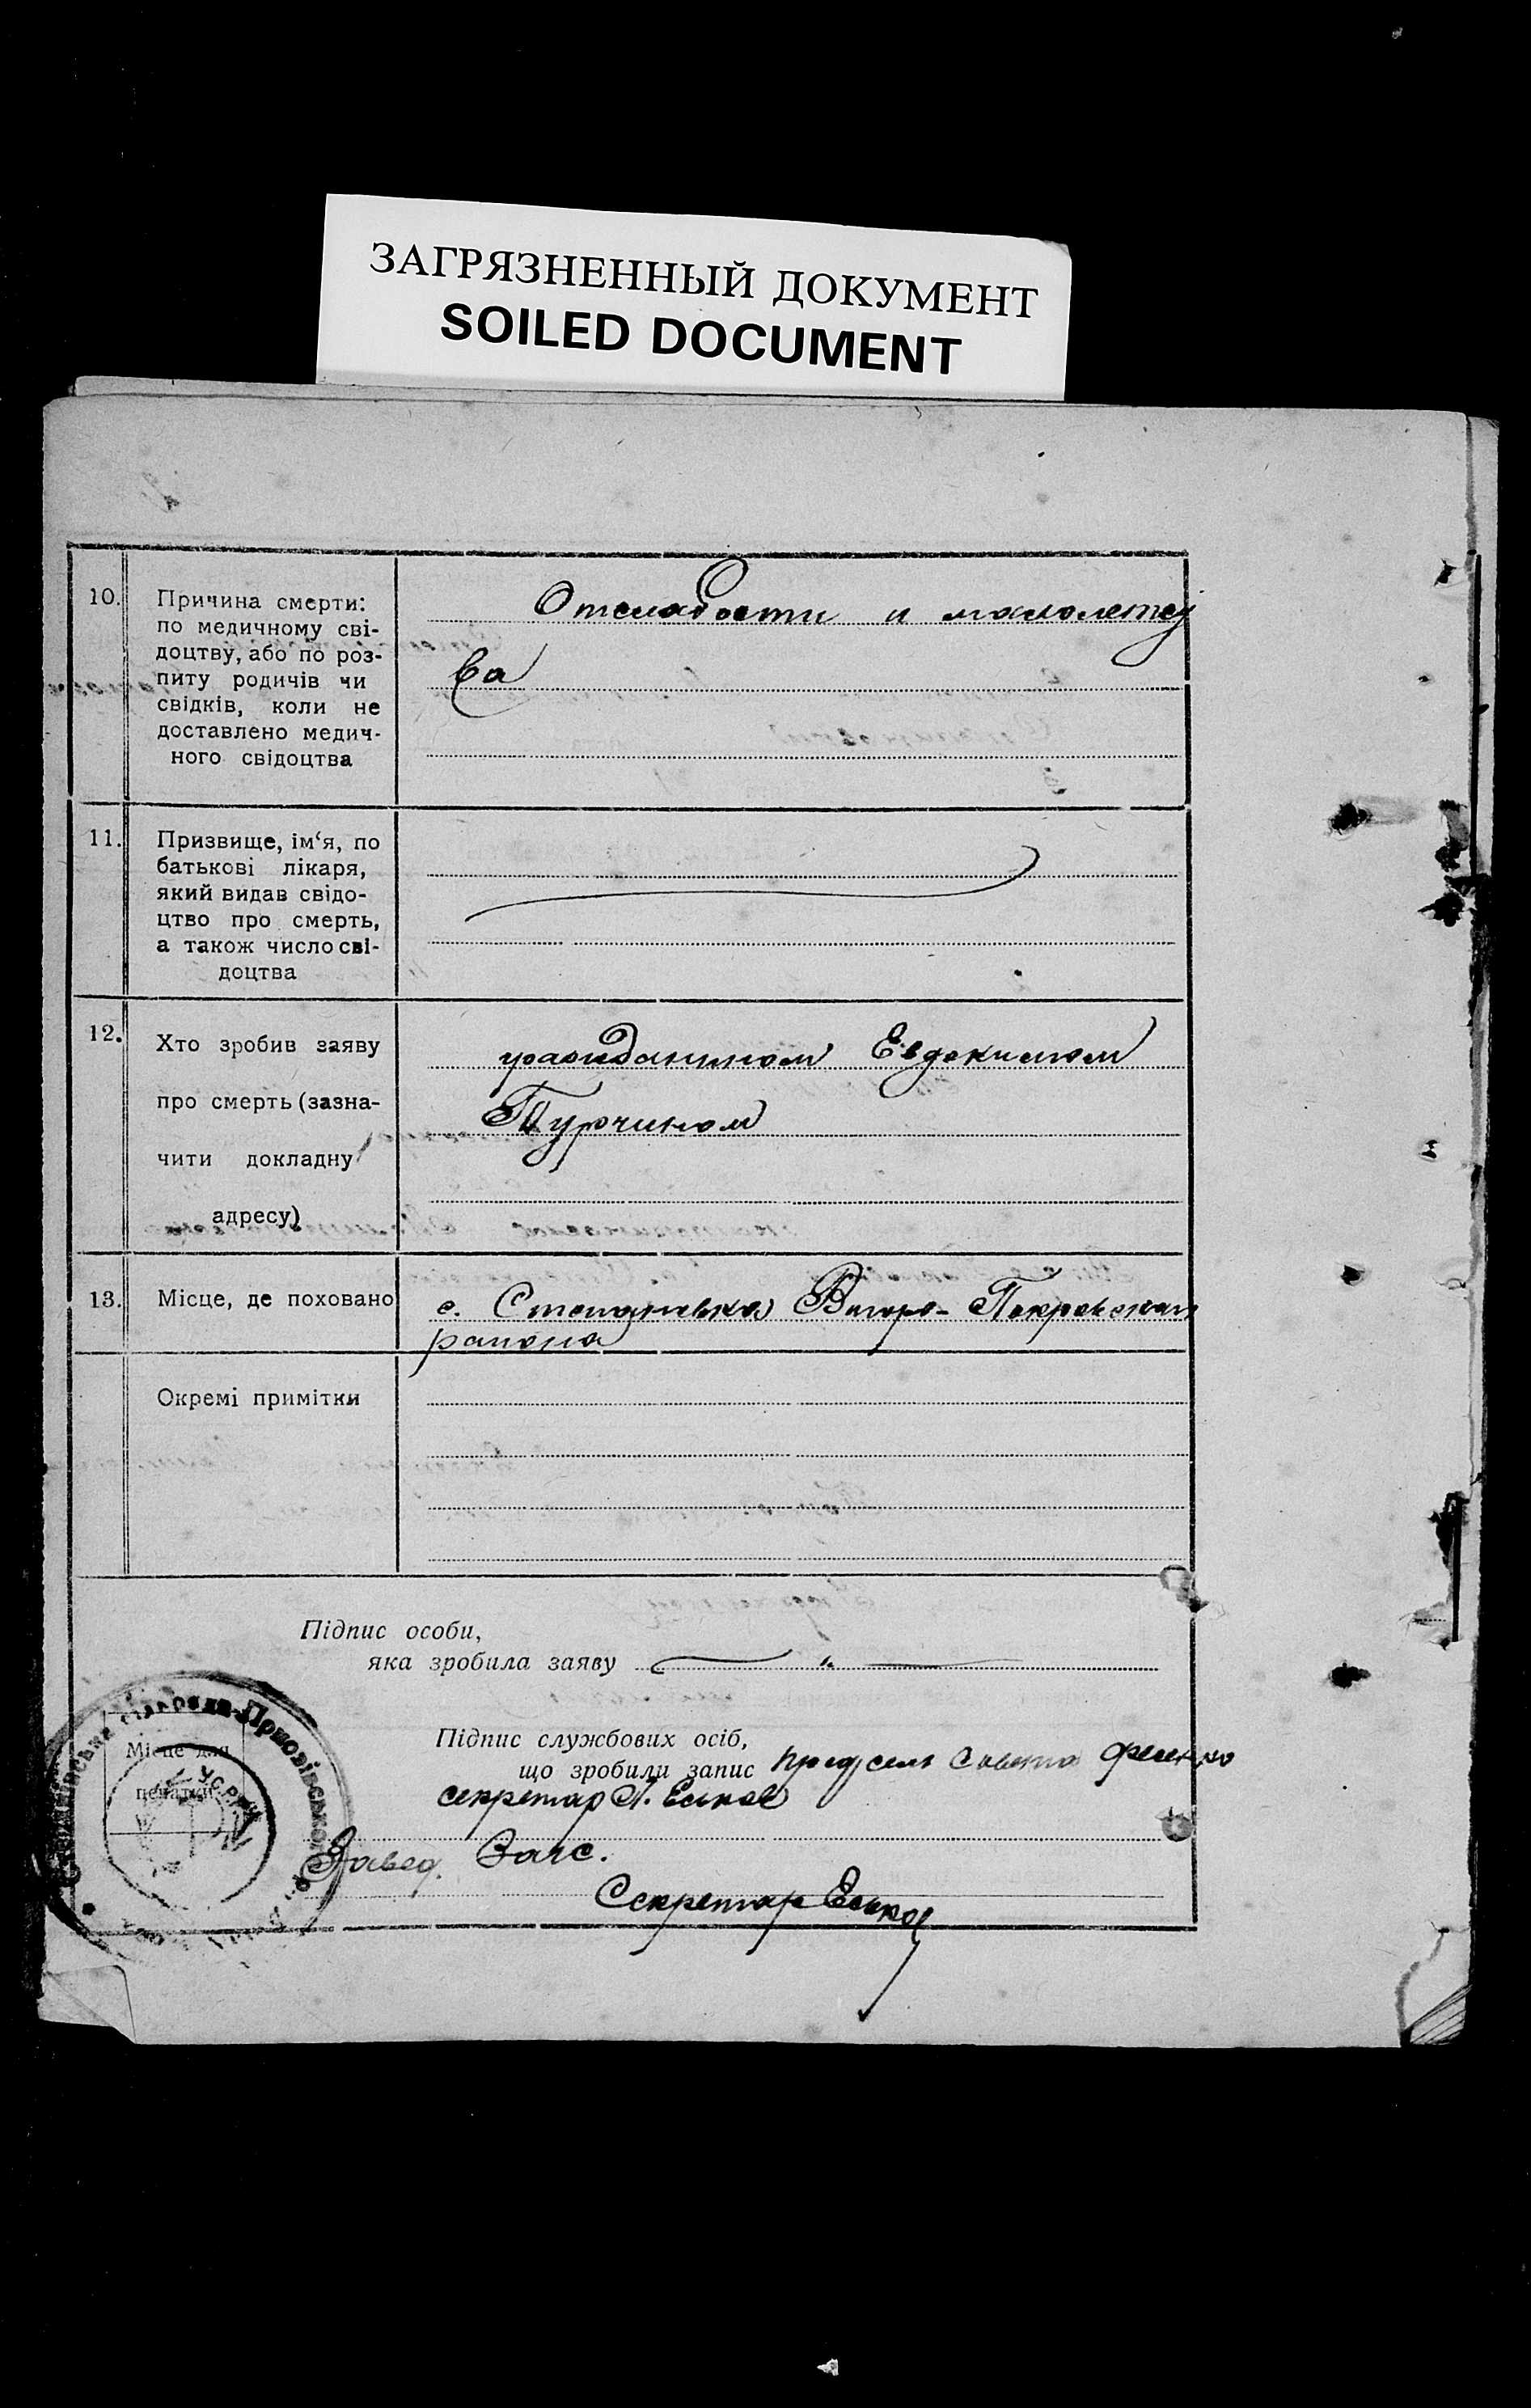 ЗАГРЯЗНЕННЫЙ ДОКУМЕНТ
SOILED DOCUMENT
10.
Причина смерти:
по медичному сві-
доцтву, або по роз-
питу родичів чи
свідків, коли не
доставлено медич-
ного свідоцтва
Отслабости и малолетс
ва
11.
Призвище, ім‘я, по
батькові лікаря,
який видав свідо-
цтво про смерть,
а також число сві-
доцтва
12.
Хто зробив заяву
про смерть (зазна-
чити докладну
адресу)
гражданином Евдокимом
Турчином
13.
Місце, де поховано
с. Степановка Покровского
района
Окремі примітки
Підпис особи,
яка зробила заяву
Місце для
печатки
УСРР
Підпис службових осіб,
що зробили запис
секретар
Завед. Загс.
Секретар